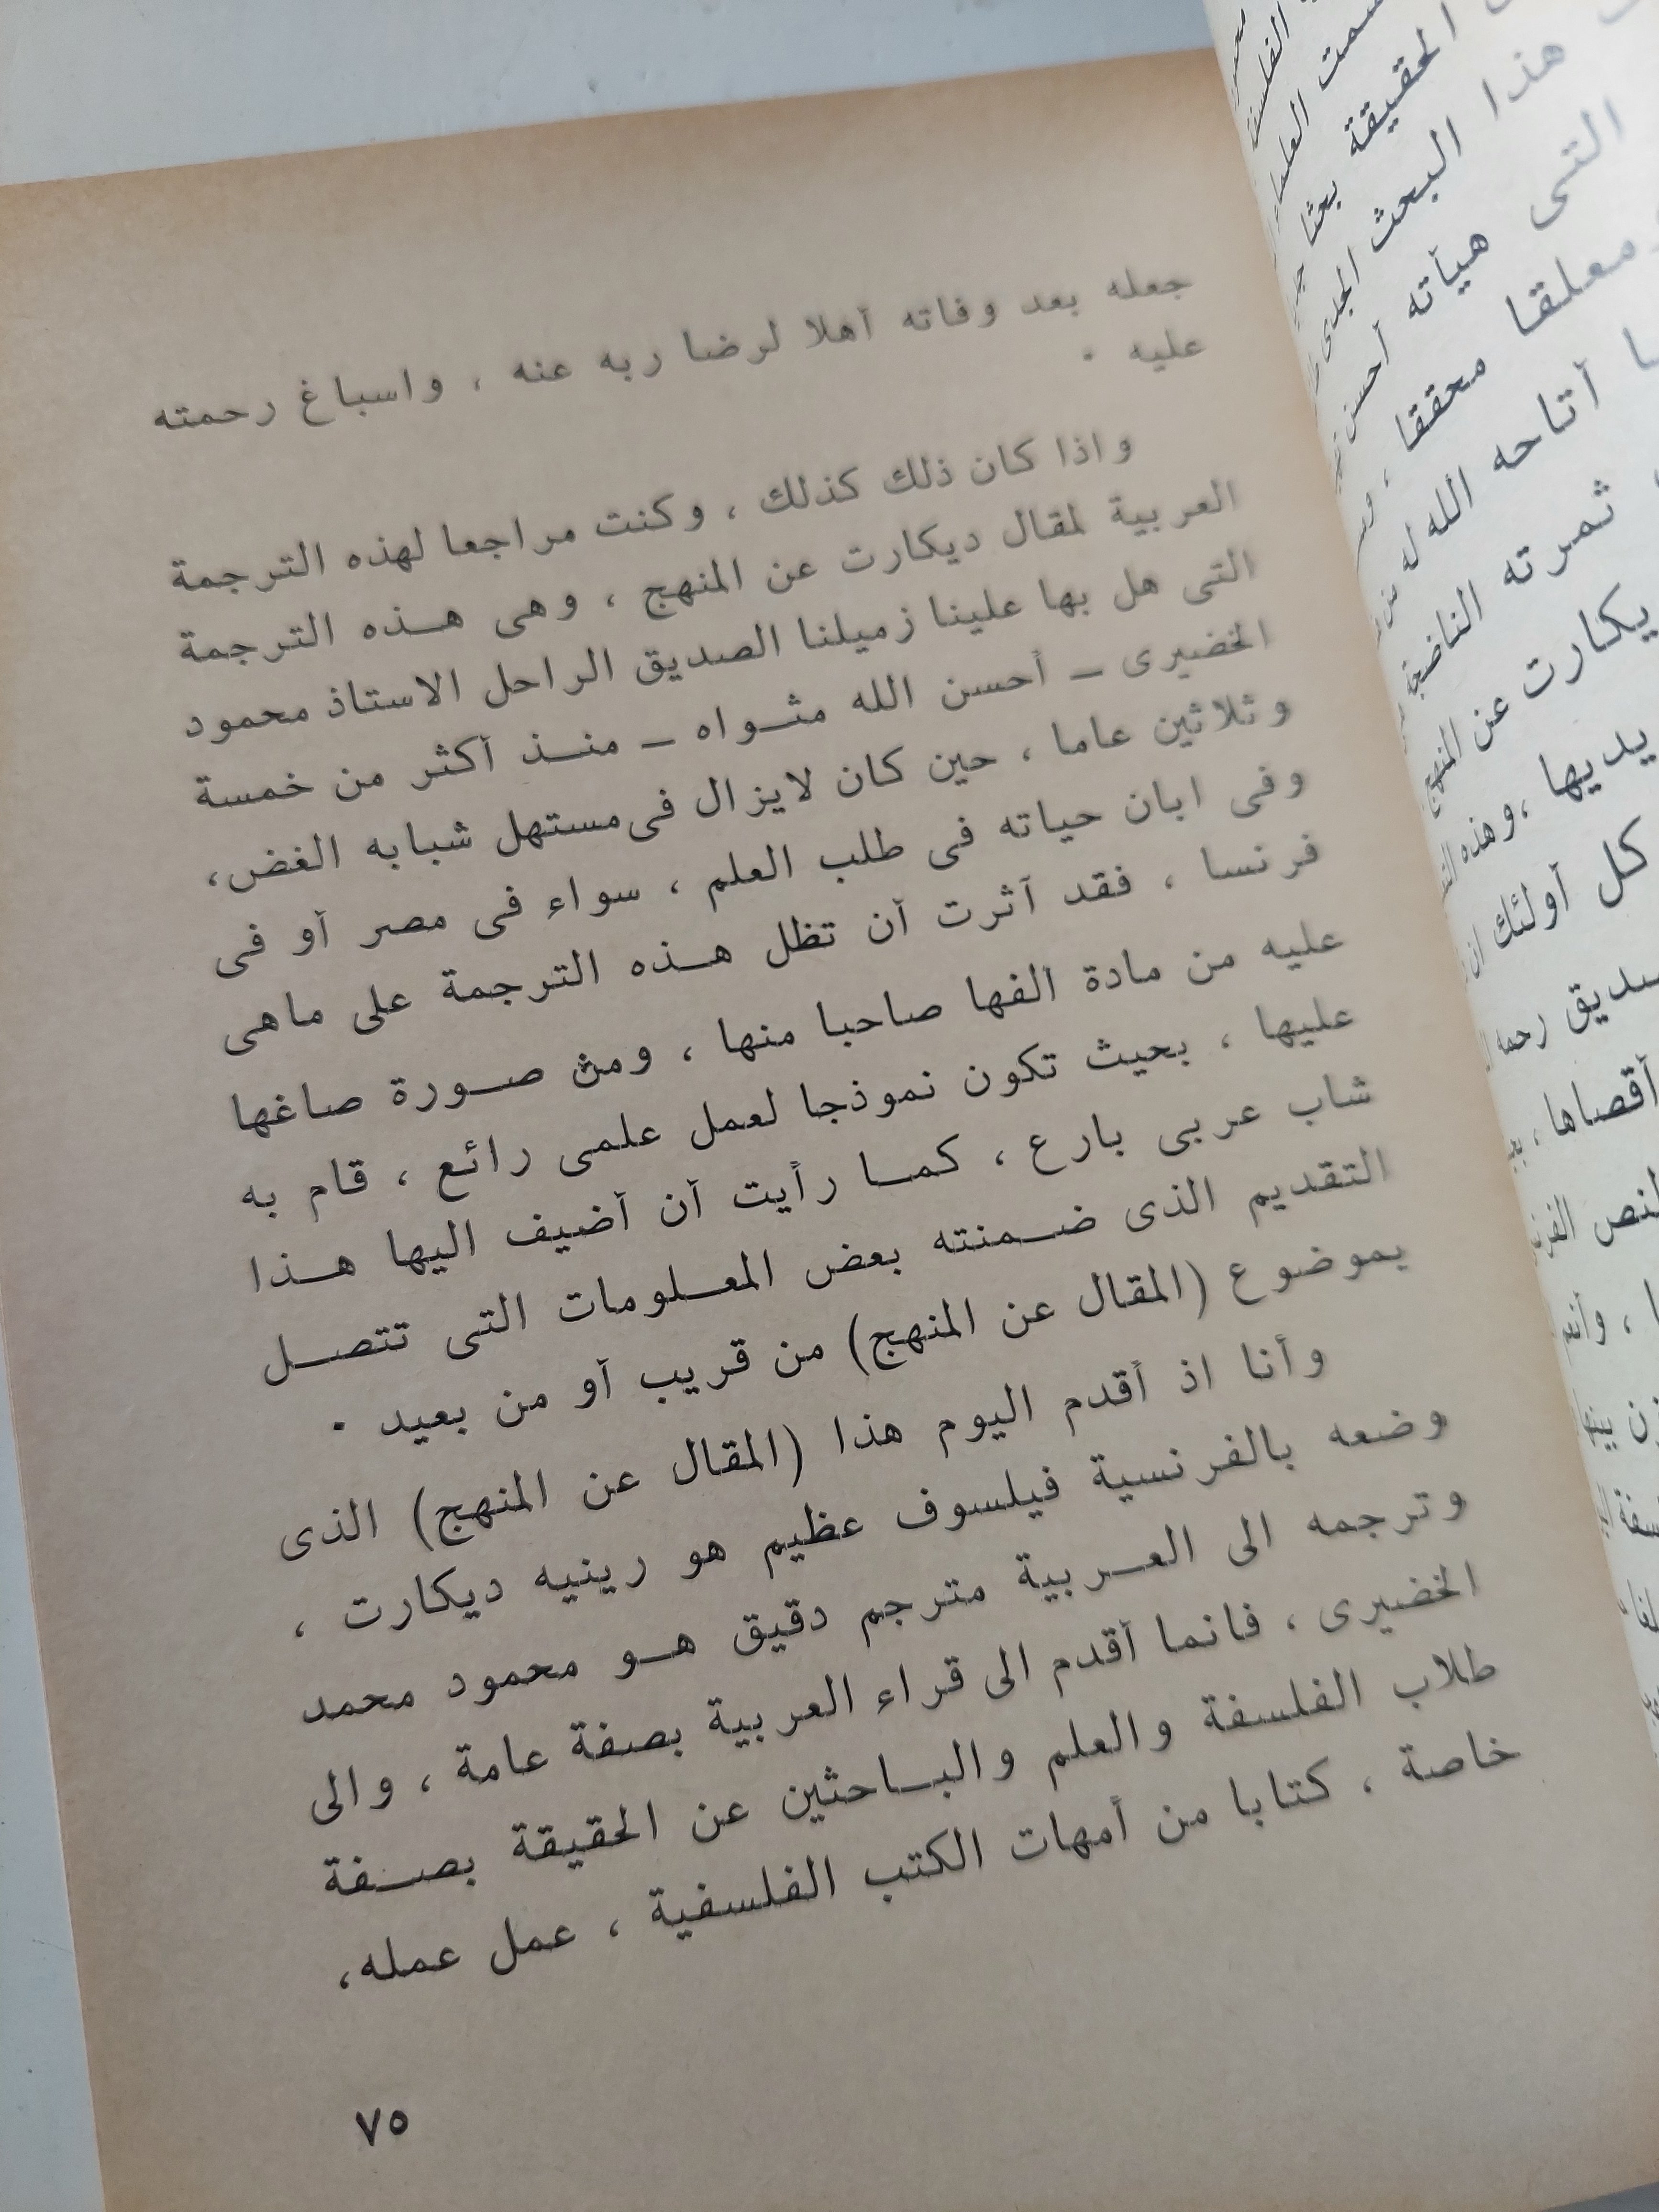 جعله بعد وفاته أهلا لرضا ربه عنه ، واسباغ رحمته
عليه .
واذا كان ذلك كذلك ، وكنت مراجعا لهذه الترجمة
العربية لمقال ديكارت عن المنهج ، وهى هذه الترجمة
التى هل بها علينا زميلنا الصديق الراحل الاستاذ محمود
الخضيرى ــ أحسن الله مثواه ــ منذ أكثر من خمسة
وثلاثين عاما ، حين كان لايزال فى مستهل شبابه الغض،
وفى ابان حياته فى طلب العلم ، سواء فى مصر أو فى
فرنسا ، فقد آثرت أن تظل هذه الترجمة على ماهى
عليه من مادة ألفها صاحبا منها ، ومن صورة صاغها
عليها ، بحيث تكون نموذجا لعمل علمى رائع ، قام به
شاب عربى بارع ، كما رأيت أن أضيف اليها هذا
التقديم الذى ضمنته بعض المعلومات التى تتصل
بموضوع (المقال عن المنهج) من قريب أو من بعيد .
وأنا اذ أقدم اليوم هذا (المقال عن المنهج) الذى
وضعه بالفرنسية فيلسوف عظيم هو رينيه ديكارت ،
وترجمه الى العربية مترجم دقيق هو محمود محمد
الخضيرى ، فانما أقدم الى قراء العربية بصفة عامة ، والى
طلاب الفلسفة والعلم والباحثين عن الحقيقة بصفة
خاصة ، كتابا من أمهات الكتب الفلسفية ، عمل عمله،
٧٥
الحقيقة بحثا
هذا البحث المجدى
التى هيأته أحسن
ومعلقا محققا ،
أتاحه الله له من
ثمرته الناضجة
يكارت عن المنهج
يديها ، وهذه
كل أولئك ان
رحمه
أقصاها ،